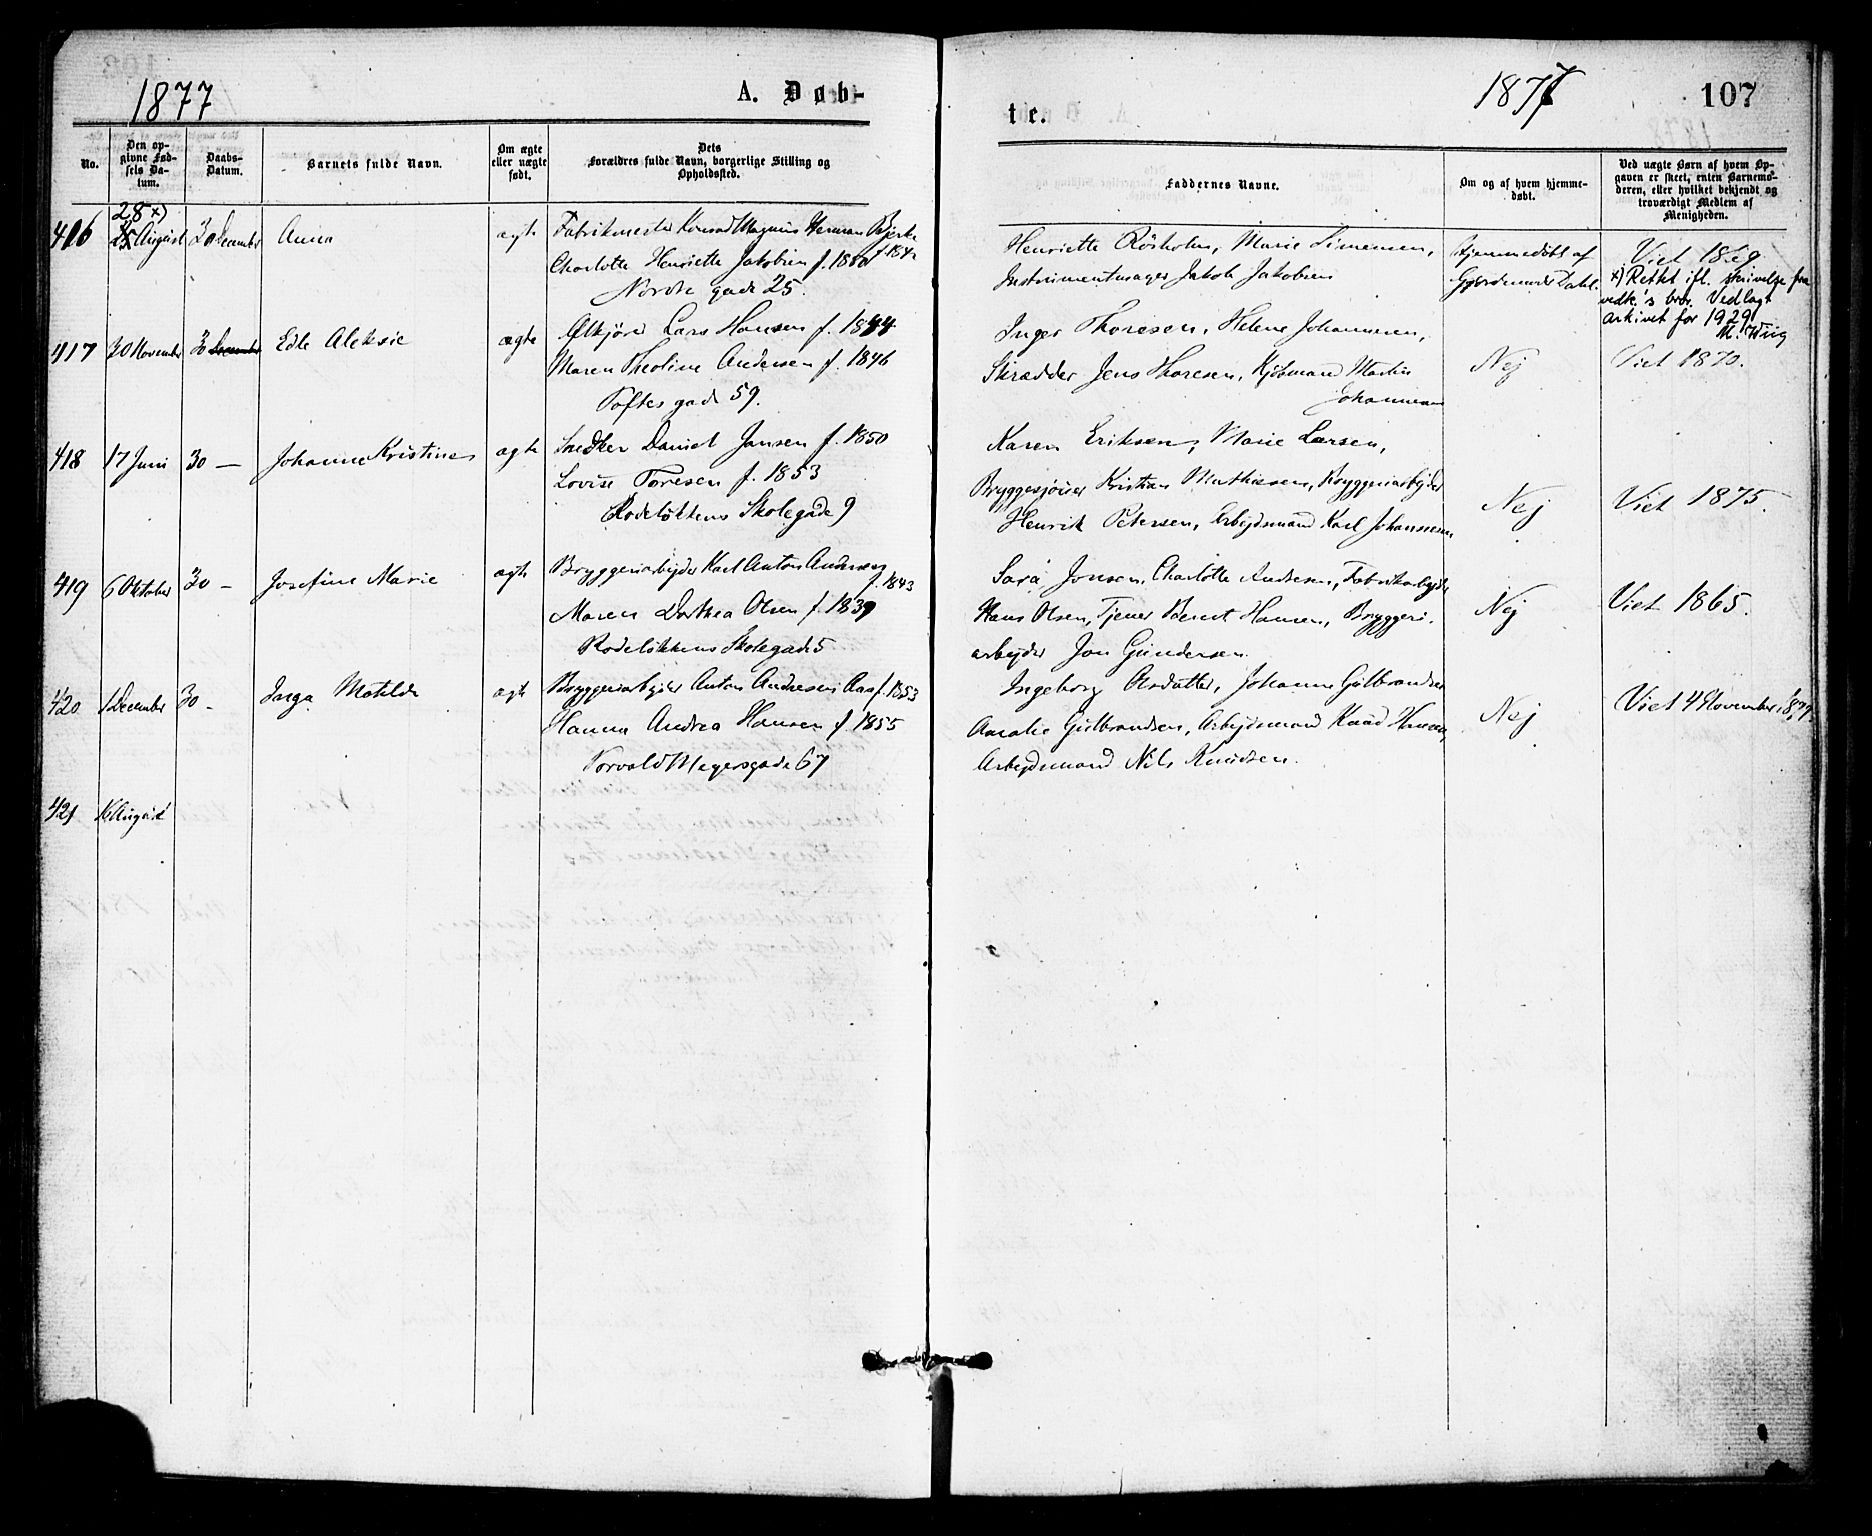 1877
A. Døb-
No.
Den op-
givne Fød-
sels Da-
tum.
Daabs-
Datum.
Barnets fulde Navn.
Om ægte
eller uægte
født.
Dets
Forældres fulde Navn, borgerlige Stilling og
Opholdssted.
28 x)
416 25 August 30 December Anna ægte Fabrikmester Konrad Magnus Herman Bjerke
f. 184
Charlotte Henriette Jakobsen f. 1850
Nordre gade 25.
417 30 November 30 December Edle Aleksie ægte Ølkjører Lars Hansen f. 1844
Maren Theoline Andersen f. 1846
Toftes gade 59.
418 17 Juni 30 — Johanne Kristine ægte Snedker Daniel Jansen f. 1850
Lovise Toresen f. 1853
Rodeløkkens Skolegade 9
419 6 Oktober 30 – Josefine Marie ægte Bryggeriarbejder Karl Anton Andersen
f. 1843
Maren Dorthea Olsen f. 1839
Rodeløkkens Skolegade 5
420 1 December 30 – Inga Matilde ægte Bryggeriarbejder Anton Andresen Aas f. 1853
Hanna Andrea Hansen f. 1855
Torvald Meyersgade 67
421 16 August
1877
107
te.
Faddernes Navne.
Om og af hvem hjemme-
døbt.
Ved uægte Børn af hvem Op-
gaven er skeet, enten Barnemo-
deren, eller hvilket bekjendt og
troværdigt Medlem af
Menigheden.
Henriette Rösholm, Marie Simensen,
Instrumentmager Jakob Jakobsen
Hjemmedöbt af
Gjordemoder Dahl.
Viet 1869
x) Rettet ifl. skrivelse fra
vedk.'s bror. Vedlagt
arkivet for 1929
M. Wiig
Inger Thoresen, Helene Johannesen,
Skrædder Jens Thoresen, Kjøbmand Martin
Johannesen
Nej
Viet 1870.
Karen Eriksen, Marie Larsen,
Bryggesjouer Kristian Mathiesen, Bryggeriarbejder
Henrik Petersen, Arbejdsmand Karl Johannesen
Nej
Viet 1875.
Sara Jonsen, Charlotte Andresen, Fabrikarbejder
Hans Olsen, Tjener Bernt Hansen, Bryggeri-
arbejder Jon Gundersen.
Nej
Viet 1865.
Ingeborg Olsdatter, Johanne Gulbrandsen
Amalie Gulbrandsen, Arbejdsmand Knud Hansen,
Arbejdsmand Nils Knudsen.
Nej
Viet 4 November 1877.